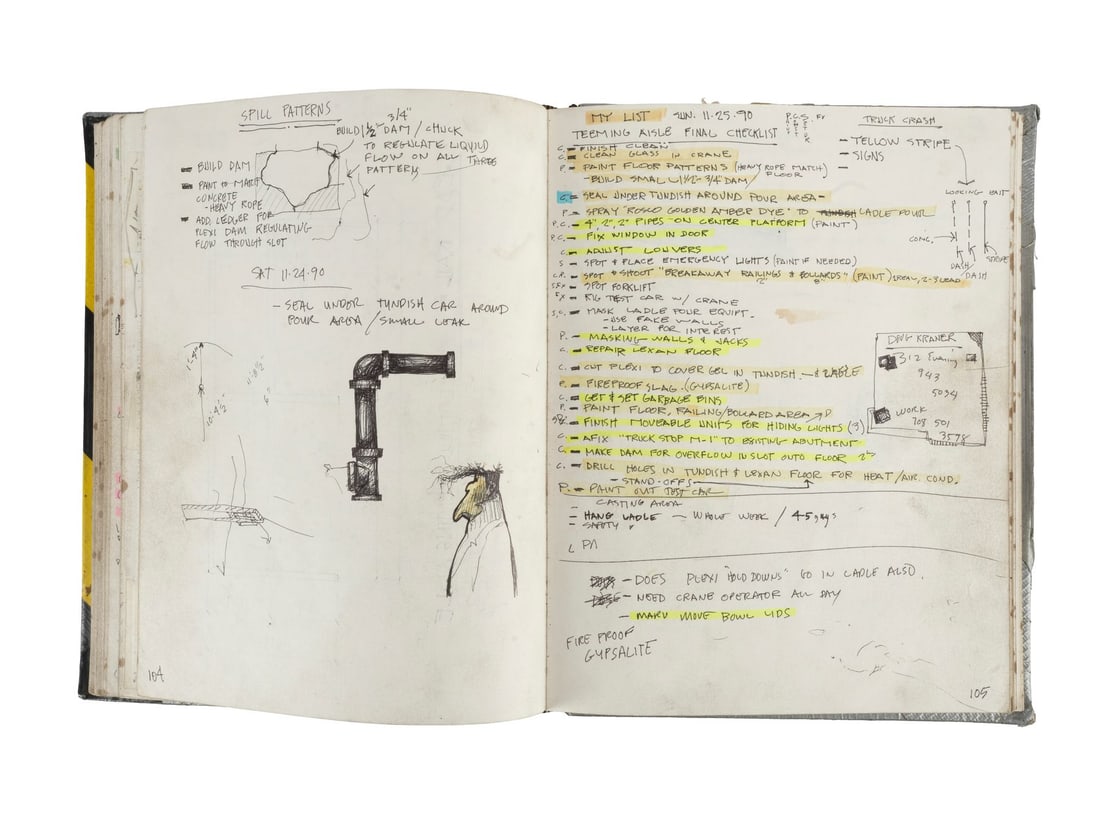 SPILL PATTERNS
3/4"
BUILD 1 1/2" DAM / CHUCK
TO REGULATE LIQUID
FLOW ON ALL THREE
PATTERNS
- BUILD DAM
- PAINT TO MATCH
CONCRETE
- HEAVY ROPE
- ADD LEDGER FOR
PLEXI DAM REGULATING
FLOW THROUGH SLOT
SAT 11-24-90
- SEAL UNDER TUNDISH CAR AROUND
POUR AREA / SMALL LEAK
104
MY LIST SUN. 11-25-90
TEEMING AISLE FINAL CHECKLIST
P. C. S. FX
C. - FINISH CLEAN
C. - CLEAN GLASS IN CRANE
P. - PAINT FLOOR PATTERNS (HEAVY ROPE MATCH)
FLOOR
- BUILD SMALL 1 1/2" - 3/4" DAM /
C. - SEAL UNDER TUNDISH AROUND POUR AREA -
P. - SPRAY "ROSCO GOLDEN AMBER DYE" TO TUNDISH LADLE POUR
P.C. - 4", 2", 2" PIPES ON CENTER PLATFORM (PAINT)
P.C. - FIX WINDOW IN DOOR
C. - ADJUST LOUVERS
S - SPOT & PLACE EMERGENCY LIGHTS (PAINT IF NEEDED)
C.P. - SPOT & SHOOT "BREAKAWAY RAILINGS & BOLLARDS" (PAINT) 1 REAL, 2-3 LEAD
S.FX - SPOT FORKLIFT
FX - RIG TEST CAR W/ CRANE
S.C. - MASK LADLE POUR EQUIPT.
- USE FAKE WALLS
- LAYER FOR INTEREST
P. - MASKING WALLS & JACKS
C. - REPAIR LEXAN FLOOR
C. - CUT PLEXI TO COVER GEL IN TUNDISH. - & LADLE
P. - FIREPROOF SLAG. (GYPSALITE)
C. - GET & SET GARBAGE BINS
P. - PAINT FLOOR, RAILING/BOLLARD AREA
- FINISH MOVEABLE UNITS FOR HIDING LIGHTS (3)
C. - AFIX "TRUCK STOP M-1" TO EXISTING ABUTMENT
C. - MAKE DAM FOR OVERFLOW IN SLOT ONTO FLOOR 2"
C. - DRILL HOLES IN TUNDISH & LEXAN FLOOR FOR HEAT/AIR. COND.
- STAND-OFFS
P. - PAINT OUT TEST CAR
- CASTING AREA
- HANG LADLE - WHOLE WEEK / 45 guys
- SAFETY
TRUCK CRASH
- YELLOW STRIPE
- SIGNS
LOOKING EAST
CONC.
DASH
DASH
DOUG KRANER
312 Evening
943
5034
WORK
708 501
3578
- DOES PLEXI "HOLD DOWNS" GO IN LADLE ALSO.
- NEED CRANE OPERATOR ALL DAY
- MARV MOVE BOWL LIDS
FIRE PROOF
GYPSALITE
105